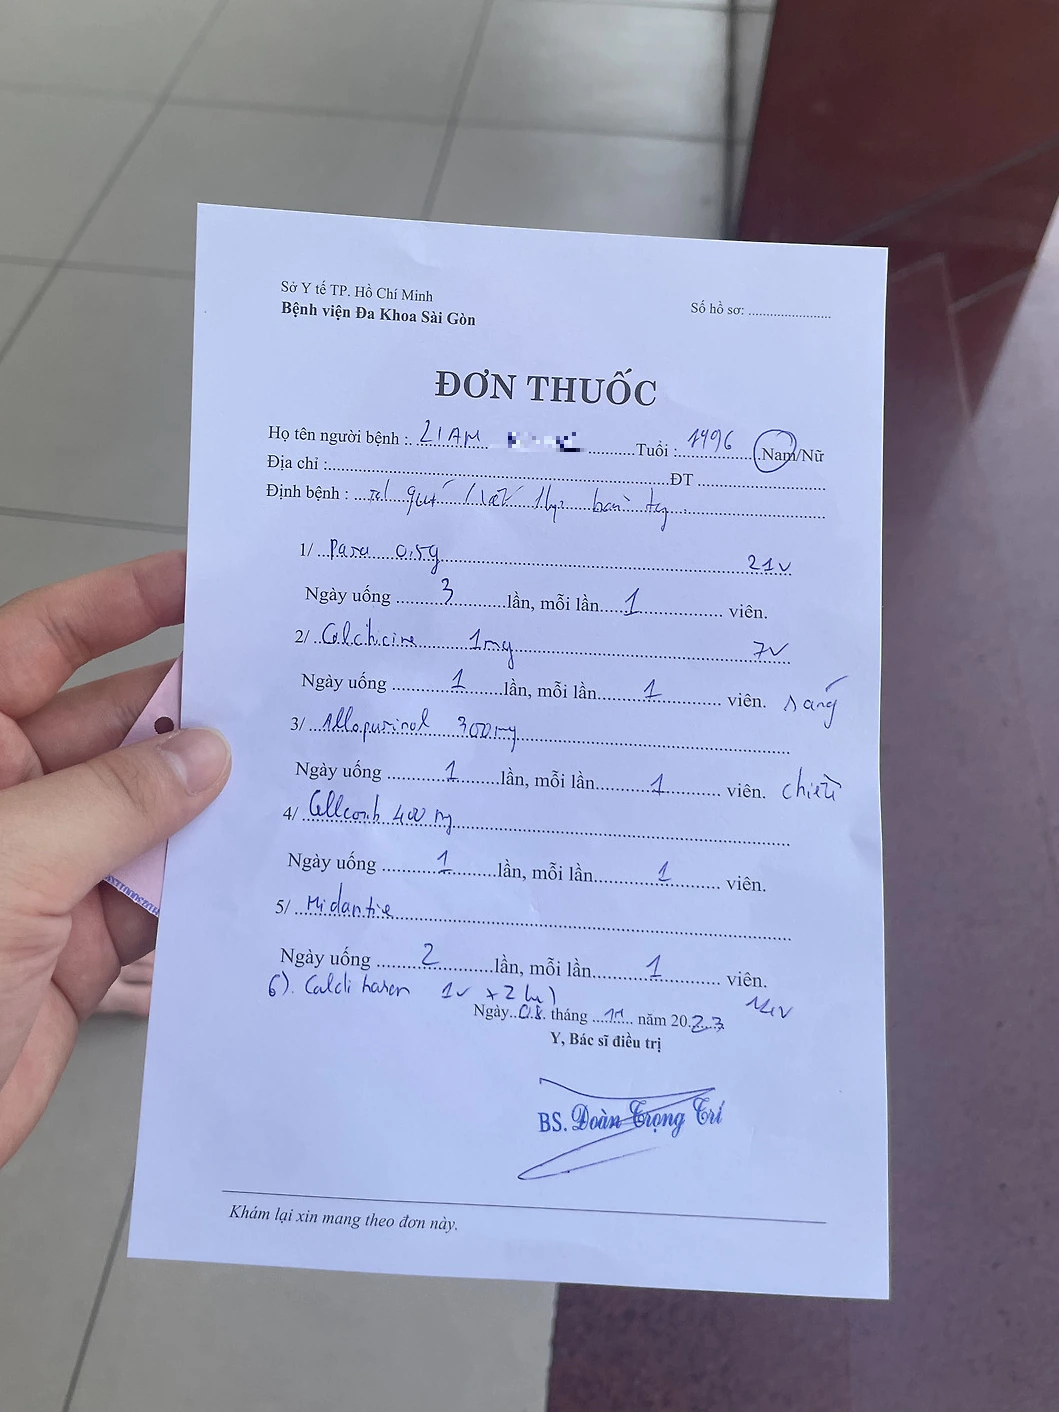 Sở Y tế TP. Hồ Chí Minh
Bệnh viện Đa Khoa Sài Gòn
Số hồ sơ: ........................
ĐƠN THUỐC
Họ tên người bệnh : LIAM Tuổi : 1996 Nam/Nữ
Địa chỉ : ĐT
Định bệnh : gút / bàn
1/ Para 0,5g 21v
Ngày uống 3 lần, mỗi lần 1 viên.
2/ Colchicine 1mg 7v
Ngày uống 1 lần, mỗi lần 1 viên. sáng
3/ Allopurinol 300mg
Ngày uống 1 lần, mỗi lần 1 viên. chiều
4/ 400
Ngày uống 1 lần, mỗi lần 1 viên.
5/ Midantie
Ngày uống 2 lần, mỗi lần 1 viên.
6). 1v x 2 14v
Ngày 08 tháng 11 năm 2023
Y, Bác sĩ điều trị
BS. Đoàn Trọng Trí
Khám lại xin mang theo đơn này.